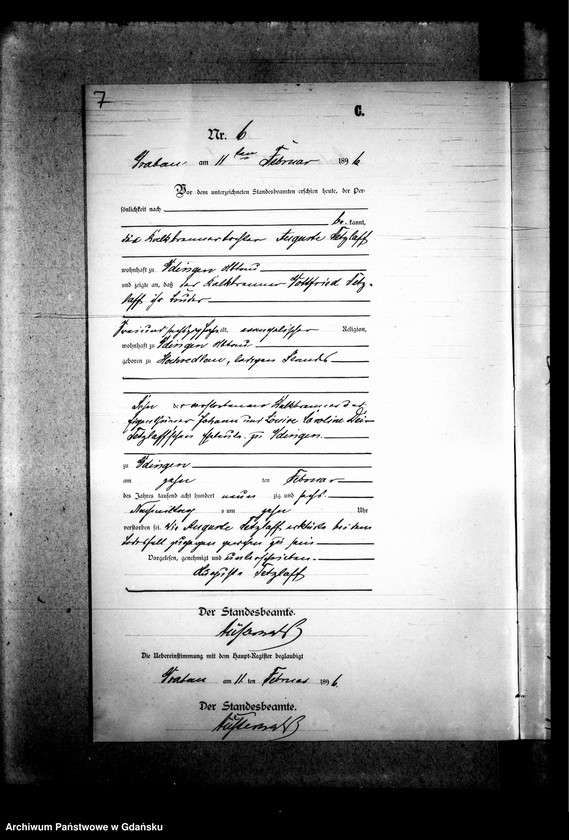 7
C.
Nr. 6
Grabau am 11 ten Februar 1896
Vor dem unterzeichneten Standesbeamten erschien heute, der Per-
sönlichkeit nach
be kannt,
die Kalkbrennertochter Auguste Tetzlaff
wohnhaft zu Gdingen Abbau
und zeigte an, daß der Kalkbrenner Gottfried Tetz-
laff ihr Bruder
alt, evangelischer Religion,
wohnhaft zu Gdingen Abbau
geboren zu Hochredlau, ledigen Standes
Sohn der verstorbenen Kalkbrenner
Johann und Louise Caroline
Tetzlaff'schen Eheleute zu Gdingen
zu Gdingen
am zehn ten Februar
des Jahres tausend acht hundert neun zig und sechs
Nachmittag s um zehn Uhr
verstorben sei. Die Auguste Tetzlaff erklärte bei dem
Todesfall zugegen gewesen zu sein
Vorgelesen, genehmigt und unterschrieben.
Auguste Tetzlaff
Der Standesbeamte.
Die Uebereinstimmung mit dem Haupt-Register beglaubigt
Grabau am 11 ten Februar 1896.
Der Standesbeamte.
Archiwum Państwowe w Gdańsku